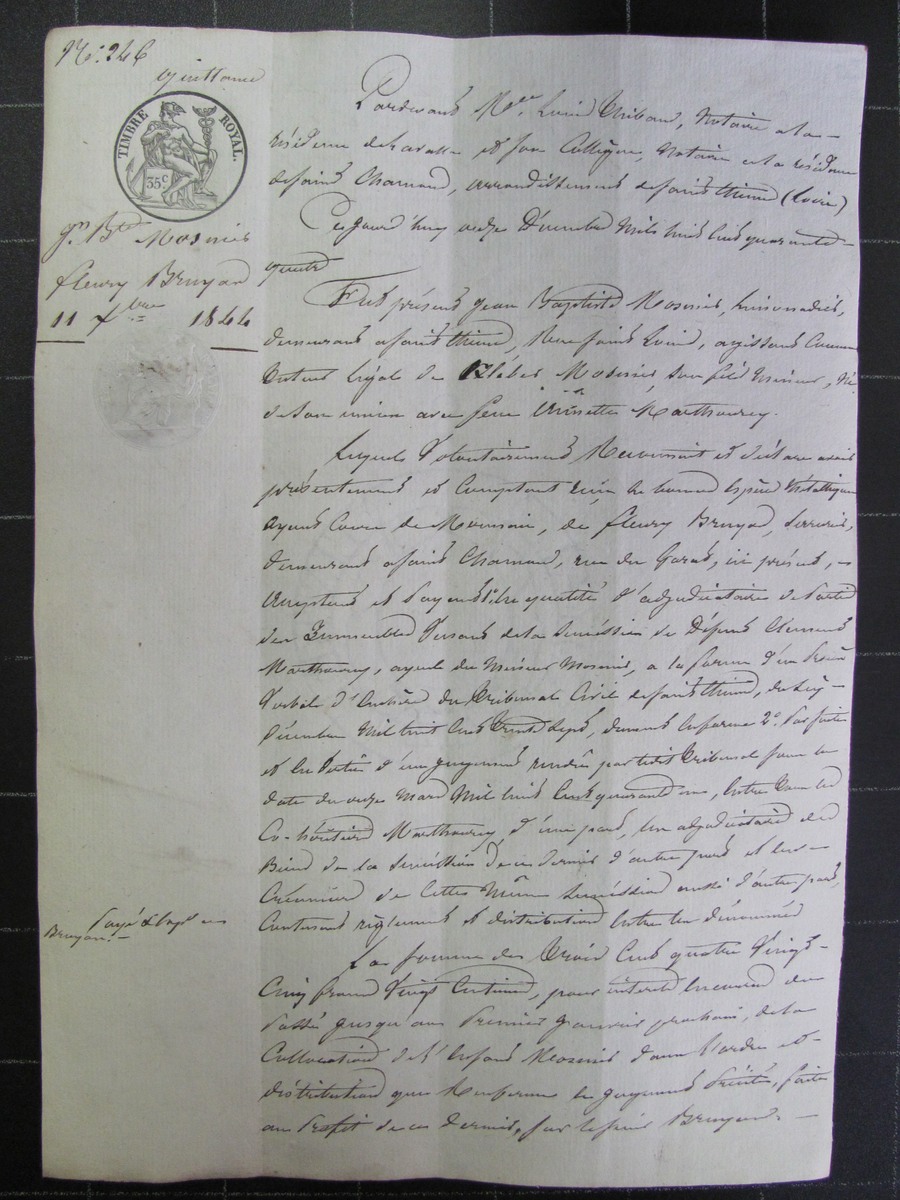 N°: 246
quittance
TIMBRE ROYAL.
35c
Jn. Bte Mosnier
fleury Bruyas
11 Xbre 1844
Payé & Copie
Bruyas
Pardevant Me Louis Thibaud, Notaire à la
résidence de Lavalla et son Collègue, Notaire à la résidence
de saint Chamond, arrondissement de saint Etienne (Loire)
Ce jourd'huy onze Décembre Mil huit cent quarante
quatre
Fut présent Jean Baptiste Mosnier, limonadier,
demeurant à saint Etienne, Rue saint Louis, agissant Comme
tuteur légal de Mosnier, son fils Mineur, Né
de son union avec feue Marthourey.
Lequel Volontairement Reconnait et déclare avoir
présentement et Comptant reçu en bonnes Espèces Métalliques
ayant Cours de Monnaie, de fleury Bruyas, serrurier,
demeurant à saint Chamond, rue du Garat, ici présent,
acceptant et payant en qualité d'adjudicataire de Partie
des Immeubles Venant de la succession de Défunt Clément
Marthourey, ayeul du Mineur Mosnier, à la forme d'un Procès
Verbal d'Enchère du Tribunal Civil de saint Etienne, du six
Décembre Mil huit Cent trente sept, dument Enforme 2e. Parfaite
et en Vertu d'un jugement rendu par ledit Tribunal sous la
date du onze Mars Mil huit Cent quarante un, Entre tous les
Co-héritiers Marthourey d'une part, les adjudicataires des
Biens de la succession de ce dernier d'autre part et les
Créanciers de Cette Même succession aussi d'autre part,
Contenant règlement et distribution Entre les dénommés
La somme de Trois Cent quatre Vingt
Cinq francs Vingt Centimes, pour intérêts encourus du
Passé jusqu'au Premier janvier prochain, de la
Collocation de l'Enfant Mosnier dans l'ordre et
distribution que Renferme le jugement Précité, faite
au Profit de ce dernier, sur le sieur Bruyas.